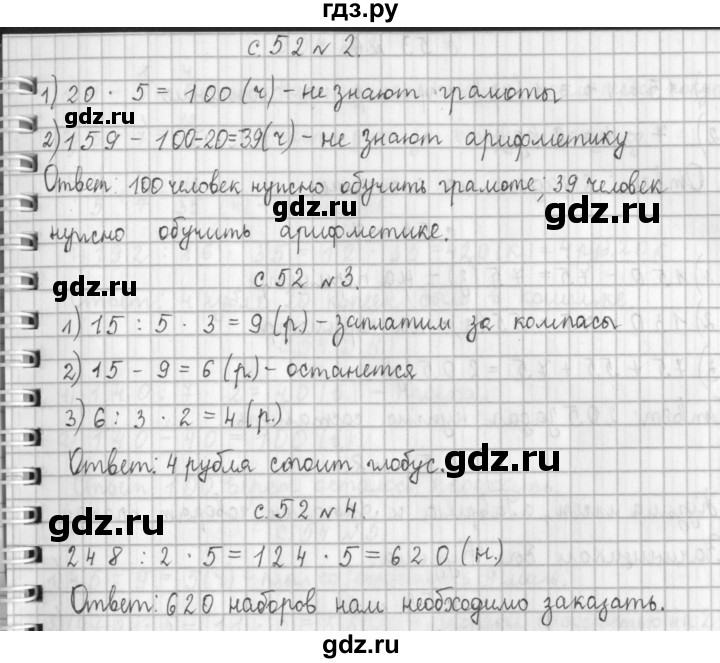 гдз.ру
с.52 № 2.
1) 20 · 5 = 100 (ч) - не знают грамоты
gdz.ru
2) 159 - 100-20=39(ч) - не знают арифметику
Ответ: 100 человек нужно обучить грамоте; 39 человек
gdz.ru
нужно обучить арифметике.
с.52 № 3.
gdz.ru
1) 15 : 5 · 3 = 9 (р.) - заплатим за компасы
2) 15 - 9 = 6 (р.) - останется
3) 6 : 3 · 2 = 4 (р.)
Ответ: 4 рубля стоит глобус.
gdz.ru
с.52 № 4.
gdz.ru
248 : 2 · 5 = 124 · 5 = 620 (н.)
Ответ: 620 наборов нам необходимо заказать.
gdz.ru